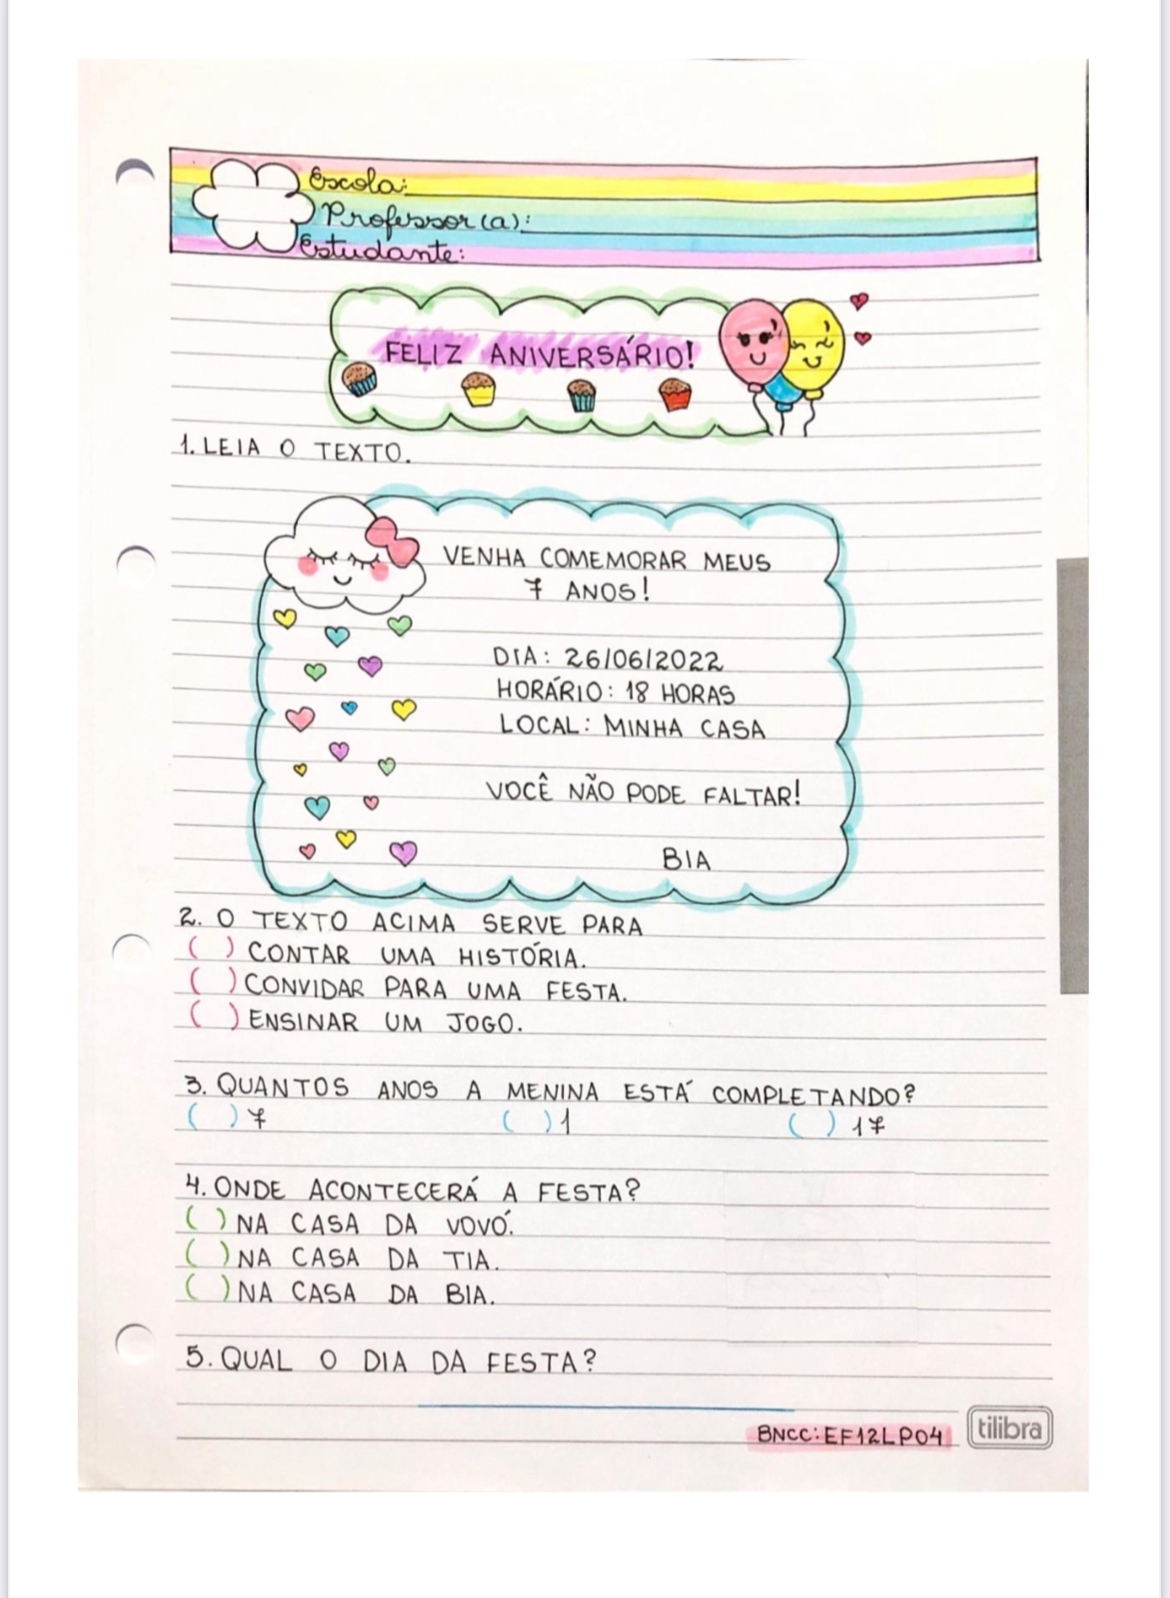 Escola:
Professor(a):
Estudante:
FELIZ ANIVERSÁRIO!
1. LEIA O TEXTO.
VENHA COMEMORAR MEUS
7 ANOS!
DIA: 26/06/2022
HORÁRIO: 18 HORAS
LOCAL: MINHA CASA
VOCÊ NÃO PODE FALTAR!
BIA
2. O TEXTO ACIMA SERVE PARA
( ) CONTAR UMA HISTÓRIA.
( ) CONVIDAR PARA UMA FESTA.
( ) ENSINAR UM JOGO.
3. QUANTOS ANOS A MENINA ESTÁ COMPLETANDO?
( ) 7 ( ) 1 ( ) 17
4. ONDE ACONTECERÁ A FESTA?
( ) NA CASA DA VOVÓ.
( ) NA CASA DA TIA.
( ) NA CASA DA BIA.
5. QUAL O DIA DA FESTA?
BNCC: EF12LP04
tilibra